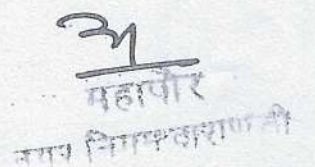 महापौर
नगर निगम वाराणसी